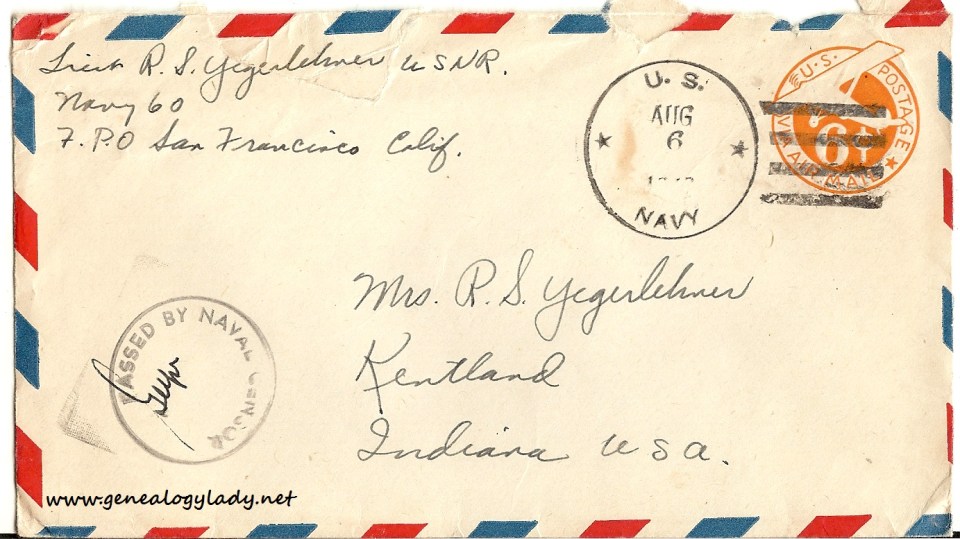 Lieut R. S. Yegerlehner USNR.
Navy 60
F.P.O San Francisco Calif.
U. S.
AUG
6
NAVY
U.S. POSTAGE
6¢
VIA AIR MAIL
Mrs. R. S. Yegerlehner
Kentland
Indiana USA.
PASSED BY NAVAL CENSOR
www.genealogylady.net